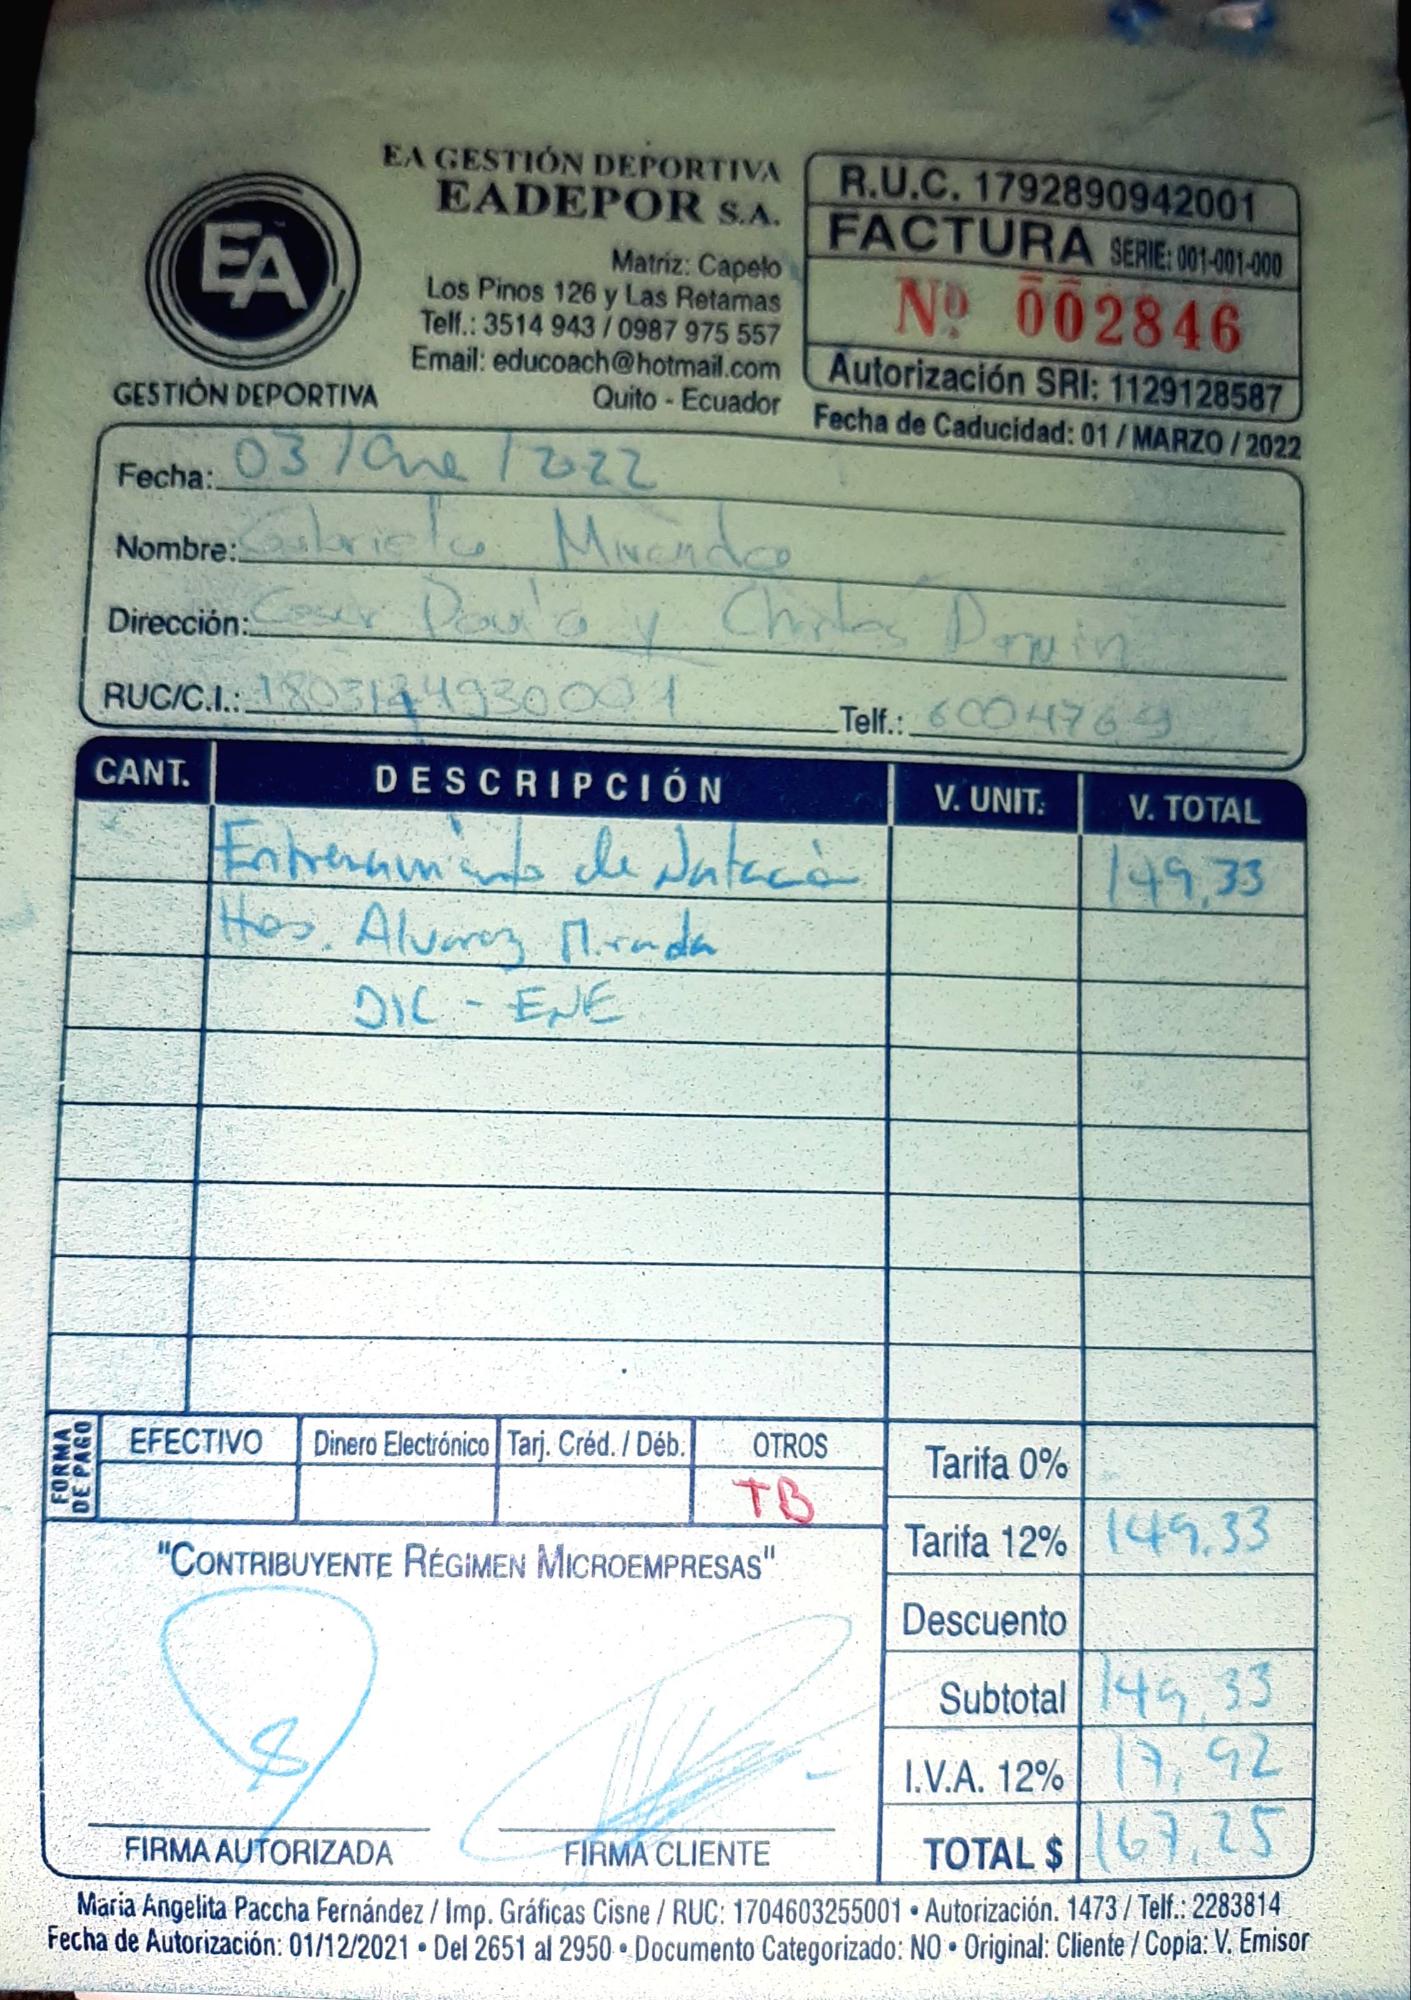 EA GESTIÓN DEPORTIVA
EADEPOR S.A.
EA
GESTIÓN DEPORTIVA
Matriz: Capelo
Los Pinos 126 y Las Retamas
Telf.: 3514 943 / 0987 975 557
Email: educoach@hotmail.com
Quito - Ecuador
R.U.C. 1792890942001
FACTURA SERIE: 001-001-000
Nº 002846
Autorización SRI: 1129128587
Fecha de Caducidad: 01 / MARZO / 2022
Fecha: 03 / Ene / 2022
Nombre: Gabriela Miranda
Dirección: y Charles Darwin
RUC/C.I.: Telf.: 6004769
CANT. DESCRIPCIÓN V. UNIT. V. TOTAL
Entrenamiento de Natación 149,33
Hos. Alvarez Miranda
DIC - ENE
FORMA DE PAGO
EFECTIVO Dinero Electrónico Tarj. Créd. / Déb. OTROS
TB
Tarifa 0%
Tarifa 12% 149.33
Descuento
Subtotal 149,33
I.V.A. 12% 17,92
TOTAL $ 167,25
"CONTRIBUYENTE RÉGIMEN MICROEMPRESAS"
FIRMA AUTORIZADA FIRMA CLIENTE
Maria Angelita Paccha Fernández / Imp. Gráficas Cisne / RUC: 1704603255001 • Autorización. 1473 / Telf.: 2283814
Fecha de Autorización: 01/12/2021 • Del 2651 al 2950 • Documento Categorizado: NO • Original: Cliente / Copia: V. Emisor